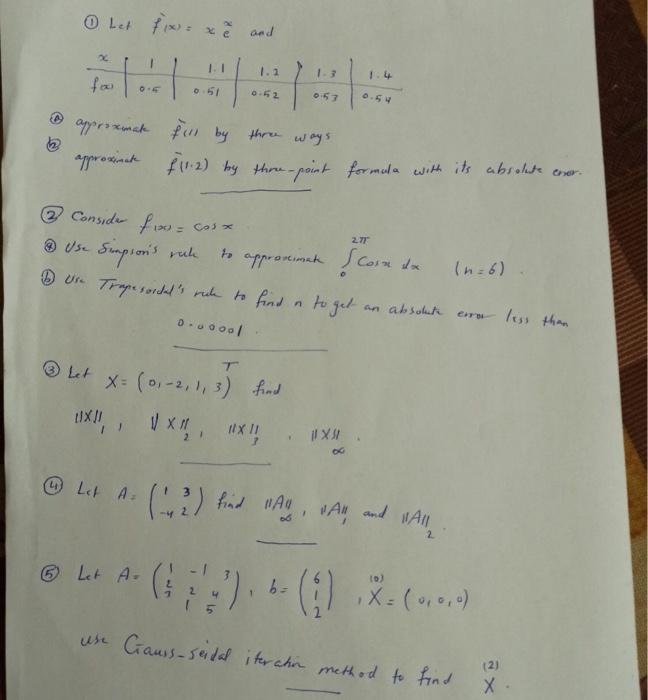 ① Let f(x) = x e^x and
x | 1 | 1.1 | 1.2 | 1.3 | 1.4
f(x) | 0.5 | 0.51 | 0.52 | 0.53 | 0.54
ⓐ approximate f'(1) by three ways
ⓑ approximate f'(1.2) by three-point formula with its absolute error.
② Consider f(x) = cos x
ⓐ Use Simpson's rule to approximate ∫₀^2π Cos x dx (n=6).
ⓑ Use Trapesoidal's rule to find n to get an absolute error less than
0.00001.
③ Let X = (0, -2, 1, 3)^T find
||X||₁, ||X||₂, ||X||₃, ||X||∞.
④ Let A = (1 3; -4 2) find ||A||∞, ||A||₁ and ||A||₂.
⑤ Let A = (1 -1 3; 2 2 4; 3 1 5), b = (6; 1; 2), X^(0) = (0, 0, 0)
use Gauss-seidal iteration method to find X^(2).